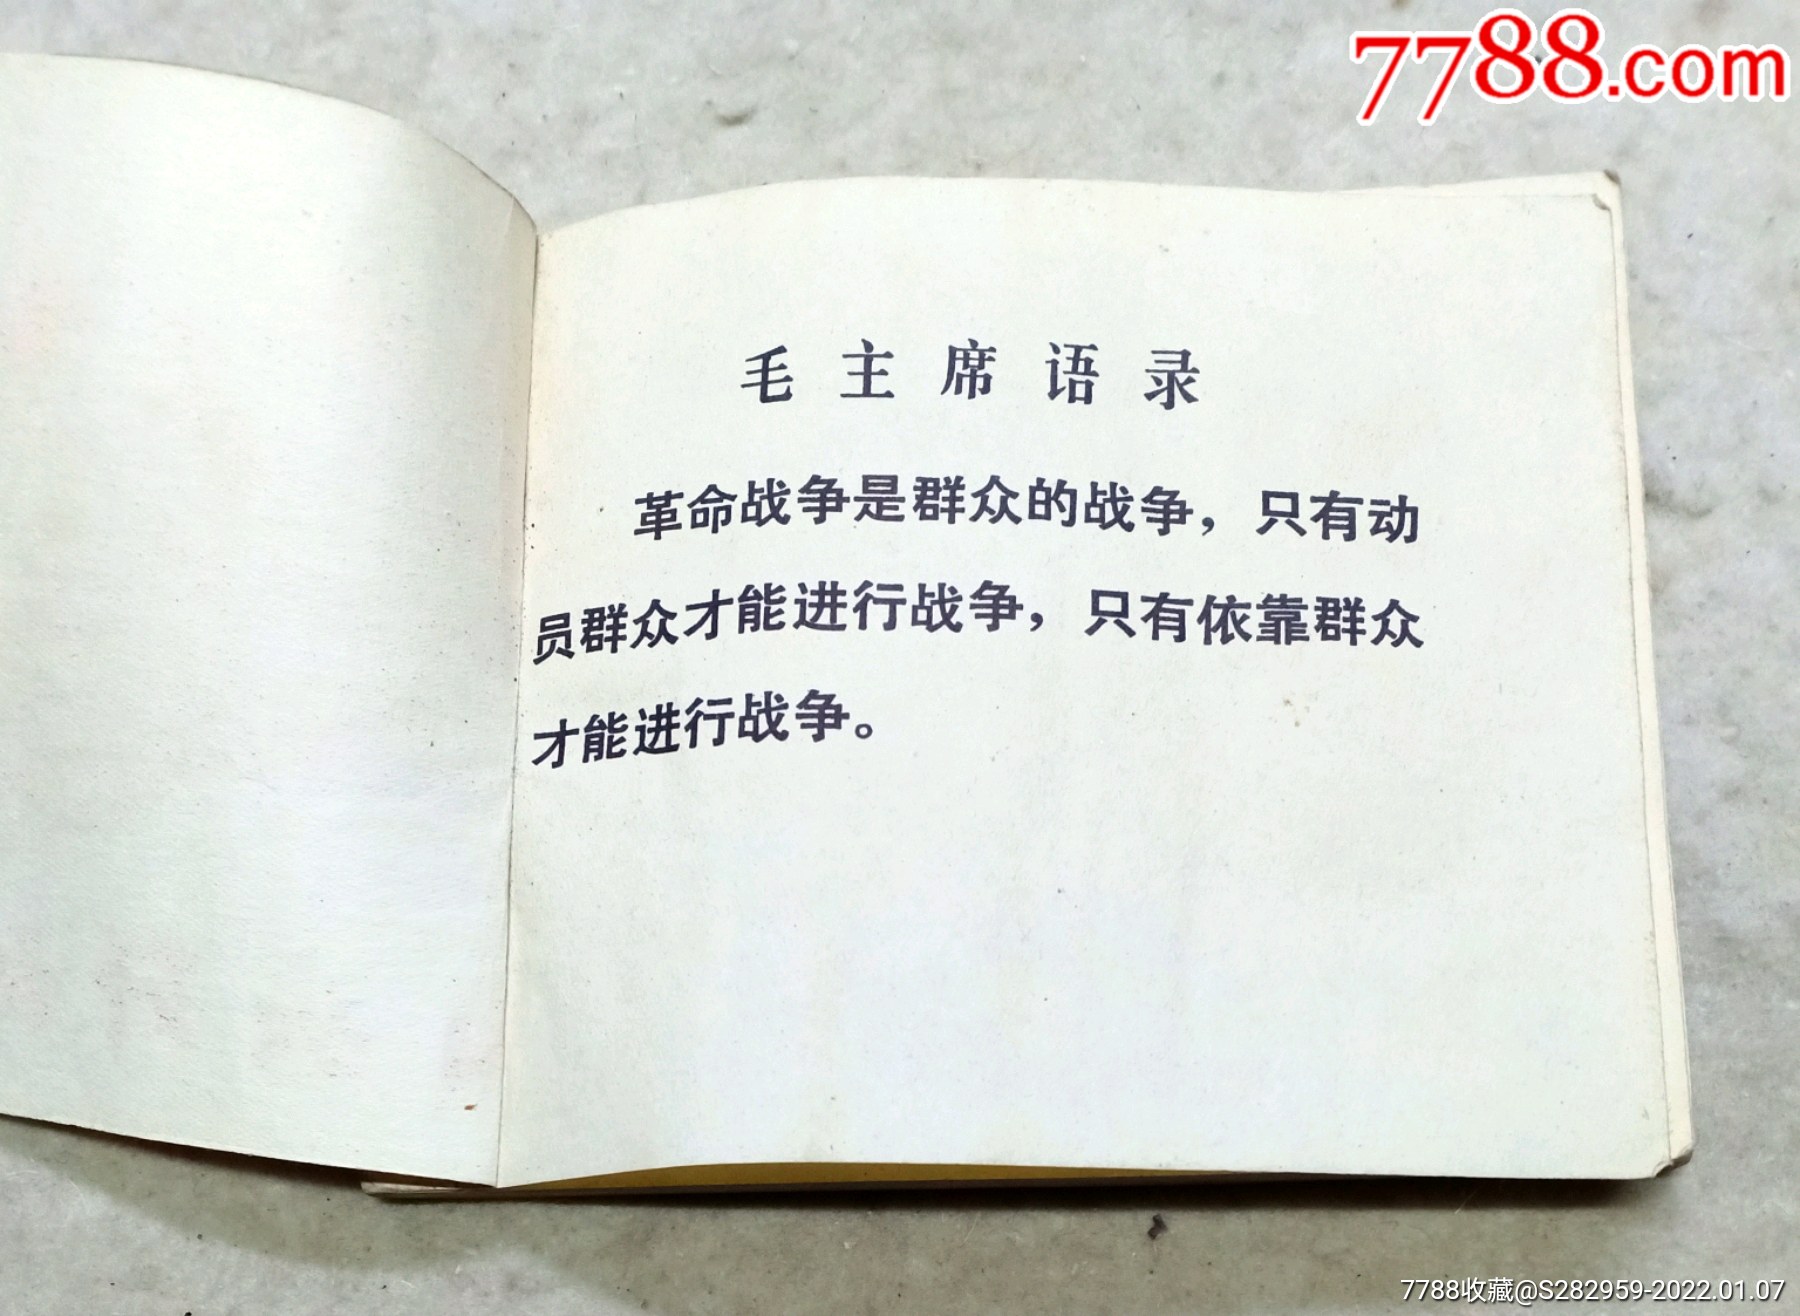 7788.com
毛主席语录
革命战争是群众的战争，只有动
员群众才能进行战争，只有依靠群众
才能进行战争。
7788收藏@S282959-2022.01.07